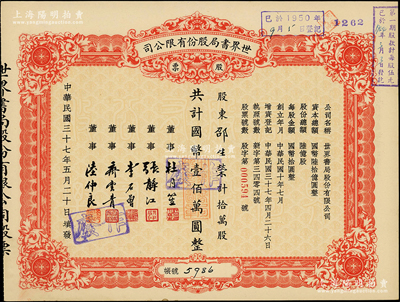 上海陽明拍賣
www.ymauction.com
已於1950年
9月1日登記
1262
司公限有份股局書界世
票股
公司名稱 世界書局股份有限公司
資本總額 國幣陸拾億圓整
股份總額 陸億股
每股金額 國幣拾圓整
創立年月 中華民國十年七月
增資登記 中華民國三十七年四月二十六日
執照號數 新字第三四零四號
股票號數 股字第000591號
股東 邵生榮 計拾萬股
共計國幣壹佰萬圓整
董事 杜月笙
董事 張靜江
董事 李石曾
董事 齊雲青
董事 陸仲良
中華民國三十七年五月二十日續發
世界書局股份有限公司股票
號領 5986